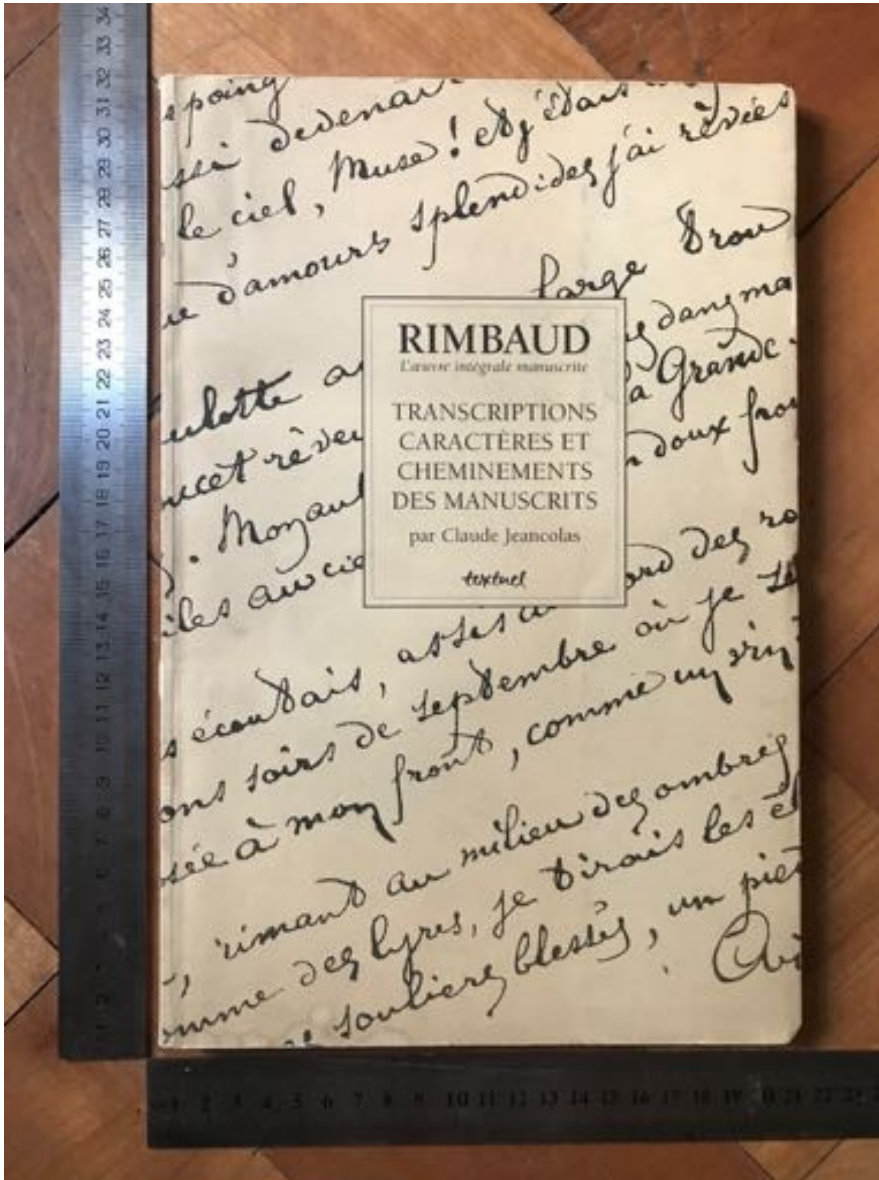 34 33 32 31 30 29 28 27 26 25 24 23 22 21 20 19 18 17 16 15 14 13 12 11 10 9 8 7
poing
ssi devenait
le ciel, Muse ! et j'étais
ue d'amours splendides j'ai rêvées
large trou
dans ma
ulotte a
a Grande-
ucet rêveu
doux frou
. Mon au
iles au cie
ord des ro
s écoutais, assis au
ons soirs de septembre où je se
sée à mon front, comme un vin
, rimant au milieu des ombres
omme des lyres, je tirais les él
souliers blessés, un pied
RIMBAUD
L'œuvre intégrale manuscrite
TRANSCRIPTIONS
CARACTÈRES ET
CHEMINEMENTS
DES MANUSCRITS
par Claude Jeancolas
textuel
1 2 3 4 5 6 7 8 9 10 11 12 13 14 15 16 17 18 19 20 21 22